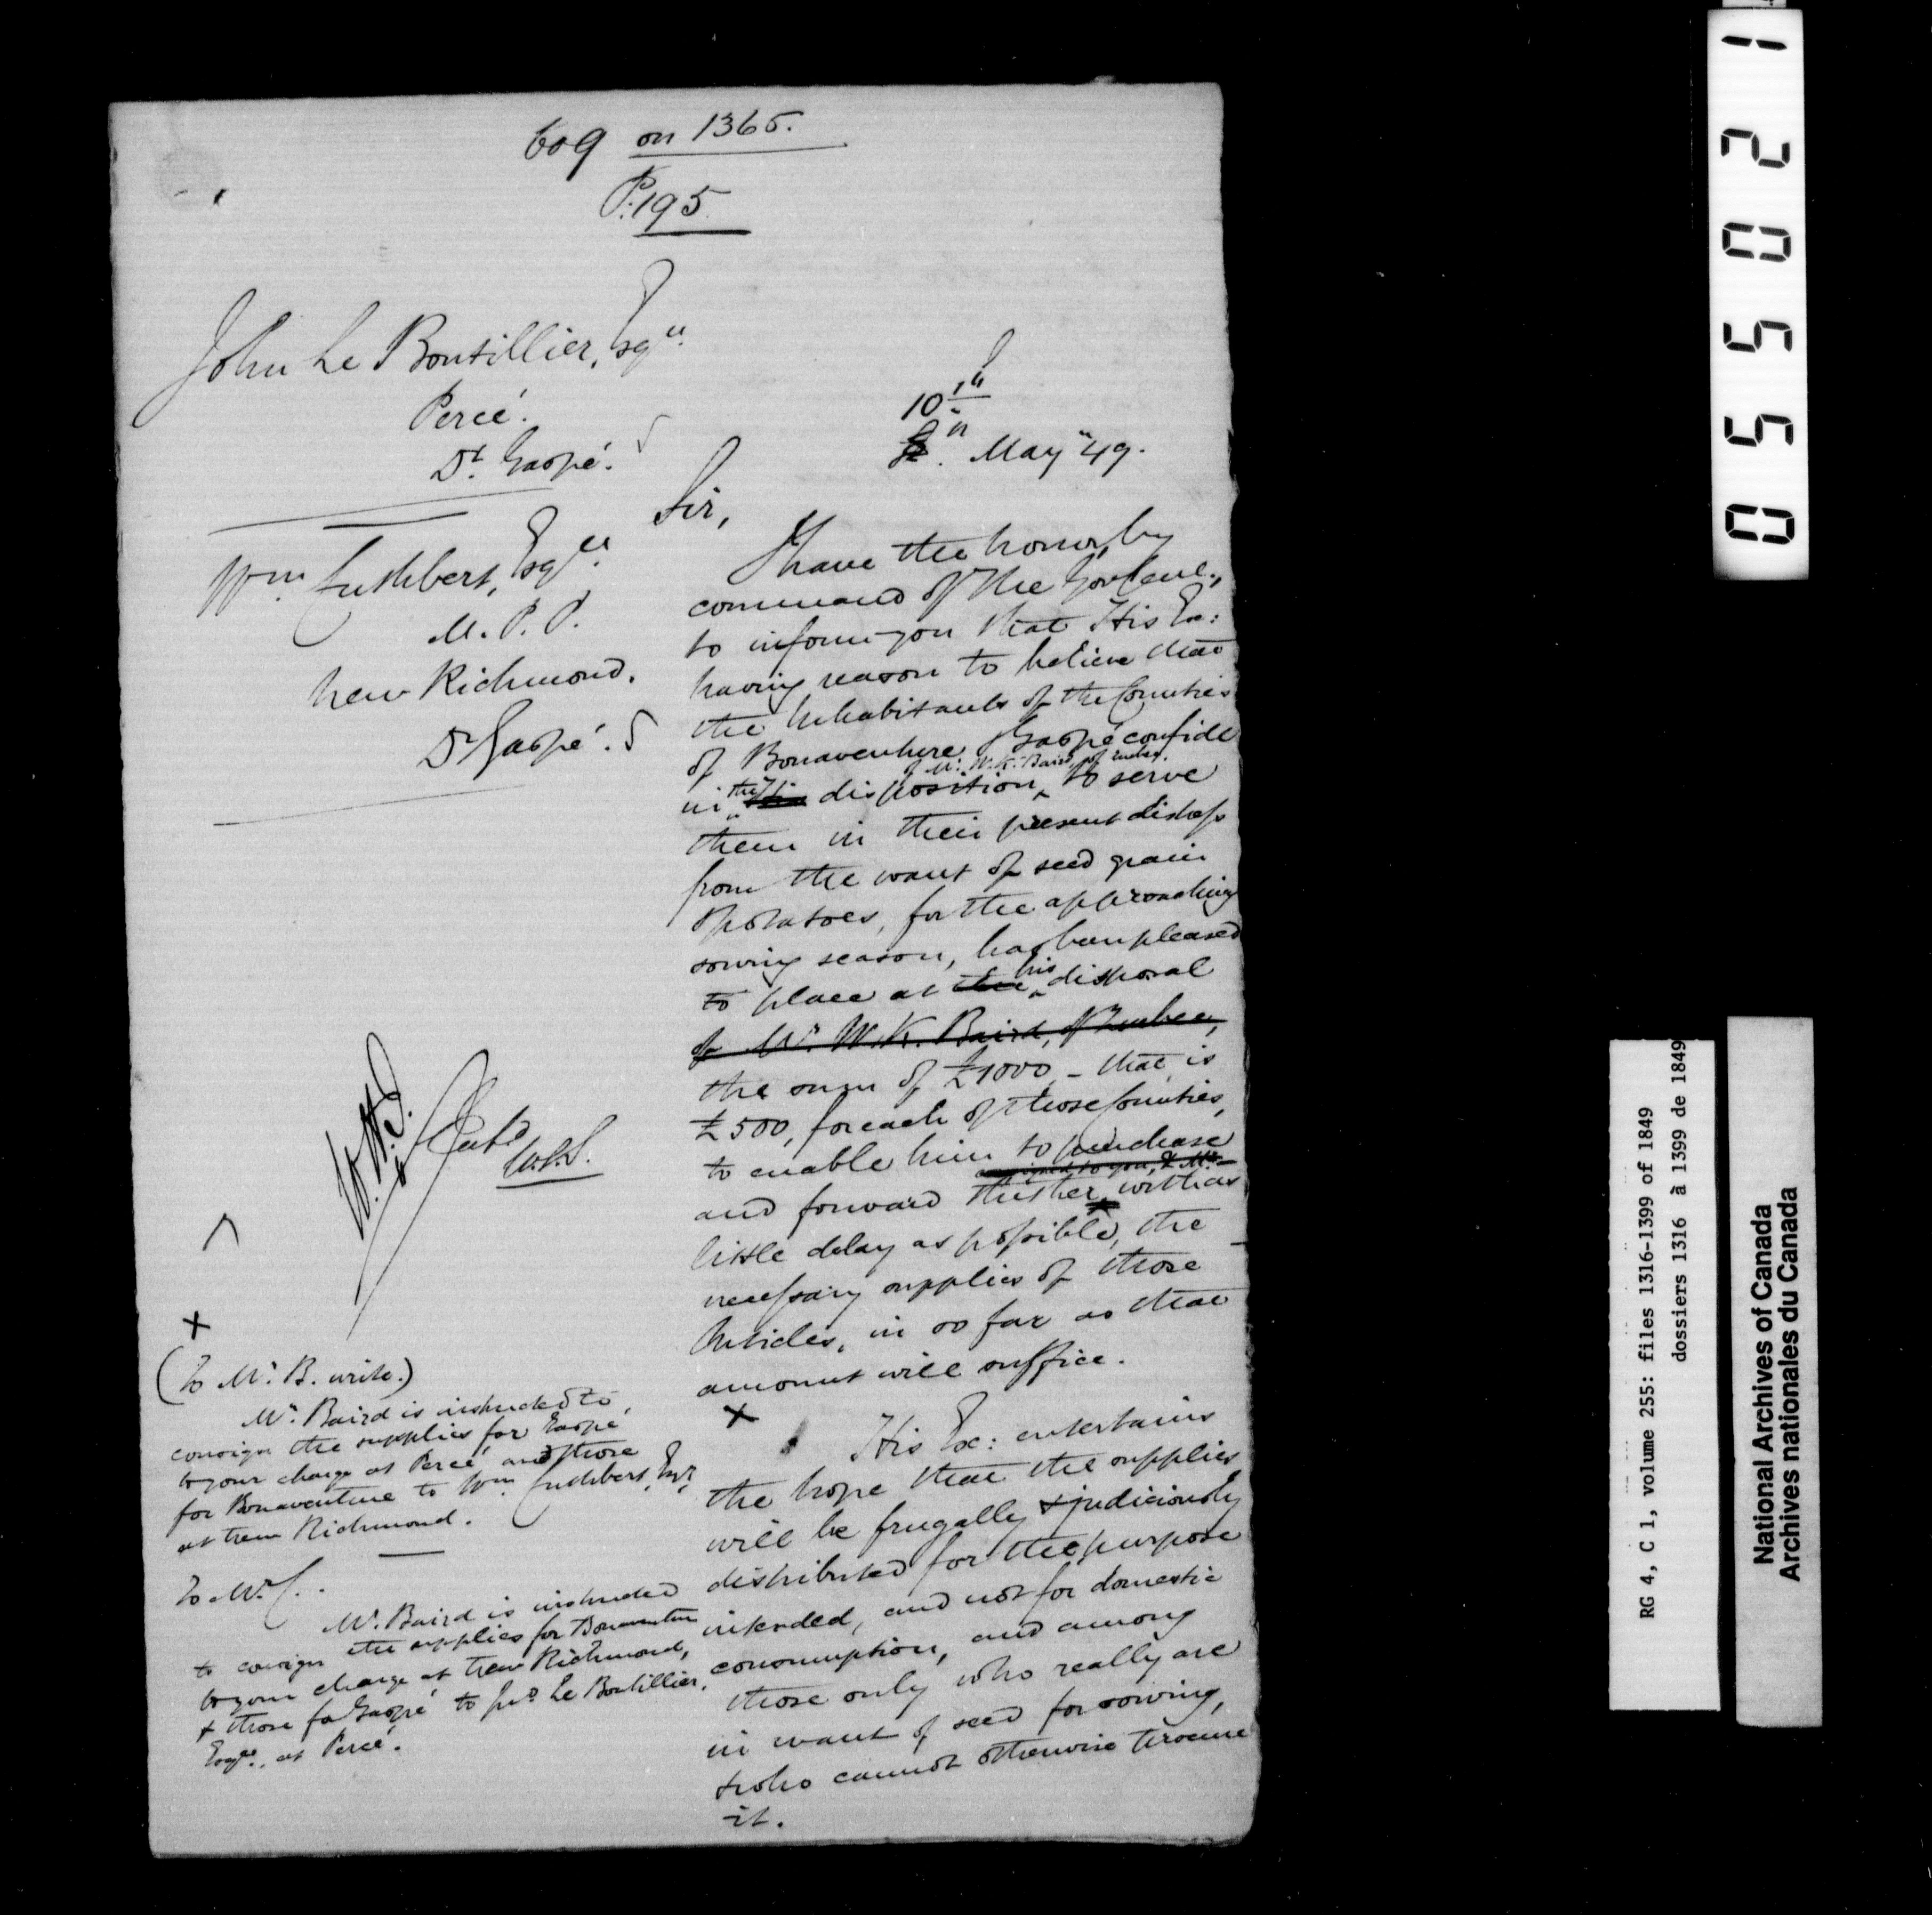 609 on 1365.
P. 195.
John Le Boutillier, Esqre.
Percé.
Dt. Gaspé.
Wm. Cuthbert, Esqre.
M.P.P.
New Richmond.
Dt Gaspé.
10th
May "49.
Sir,
I have the honor, by
command of the Gov Genl.,
to inform you that His Ex:
having reason to believe that
the Inhabitants of the Counties
of Bonaventure & Gaspé confide
of Mr. W. K. Baird, of Quebec,
in the disposition to serve
them in their present distress
from the want of seed grain
& potatoes, for the approaching
sowing season, has been pleased
to place at the his disposal
of Mr. W. K. Baird, of Quebec,
the sum of £1000 - that is
£500, for each of those Counties,
to enable him to purchase
assigned to you, & Mr.
and forward thither with as
little delay as possible, the
necessary supplies of those
Articles, in so far as that
amount will suffice.
+
His Ex: entertains
the hope that the supplies
will be frugally & judiciously
distributed for the purpose
intended, and not for domestic
consumption, and among
those only who really are
in want of seed for sowing,
& who cannot otherwise procure
it.
+
(To Mr. B. write.)
Mr. Baird is instructed to
consign the supplies for Gaspé
to your charge at Percé and those
for Bonaventure to Wm. Cuthbert, Esqr,
at New Richmond.
To Mr C.
Mr. Baird is instructed
to consign the supplies for Bonaventure
to your charge at New Richmond,
& those for Gaspé to Jno. Le Boutillier,
Esqre., at Percé.
055021
RG 4, C 1, volume 255: files 1316-1399 of 1849
dossiers 1316 à 1399 de 1849
National Archives of Canada
Archives nationales du Canada